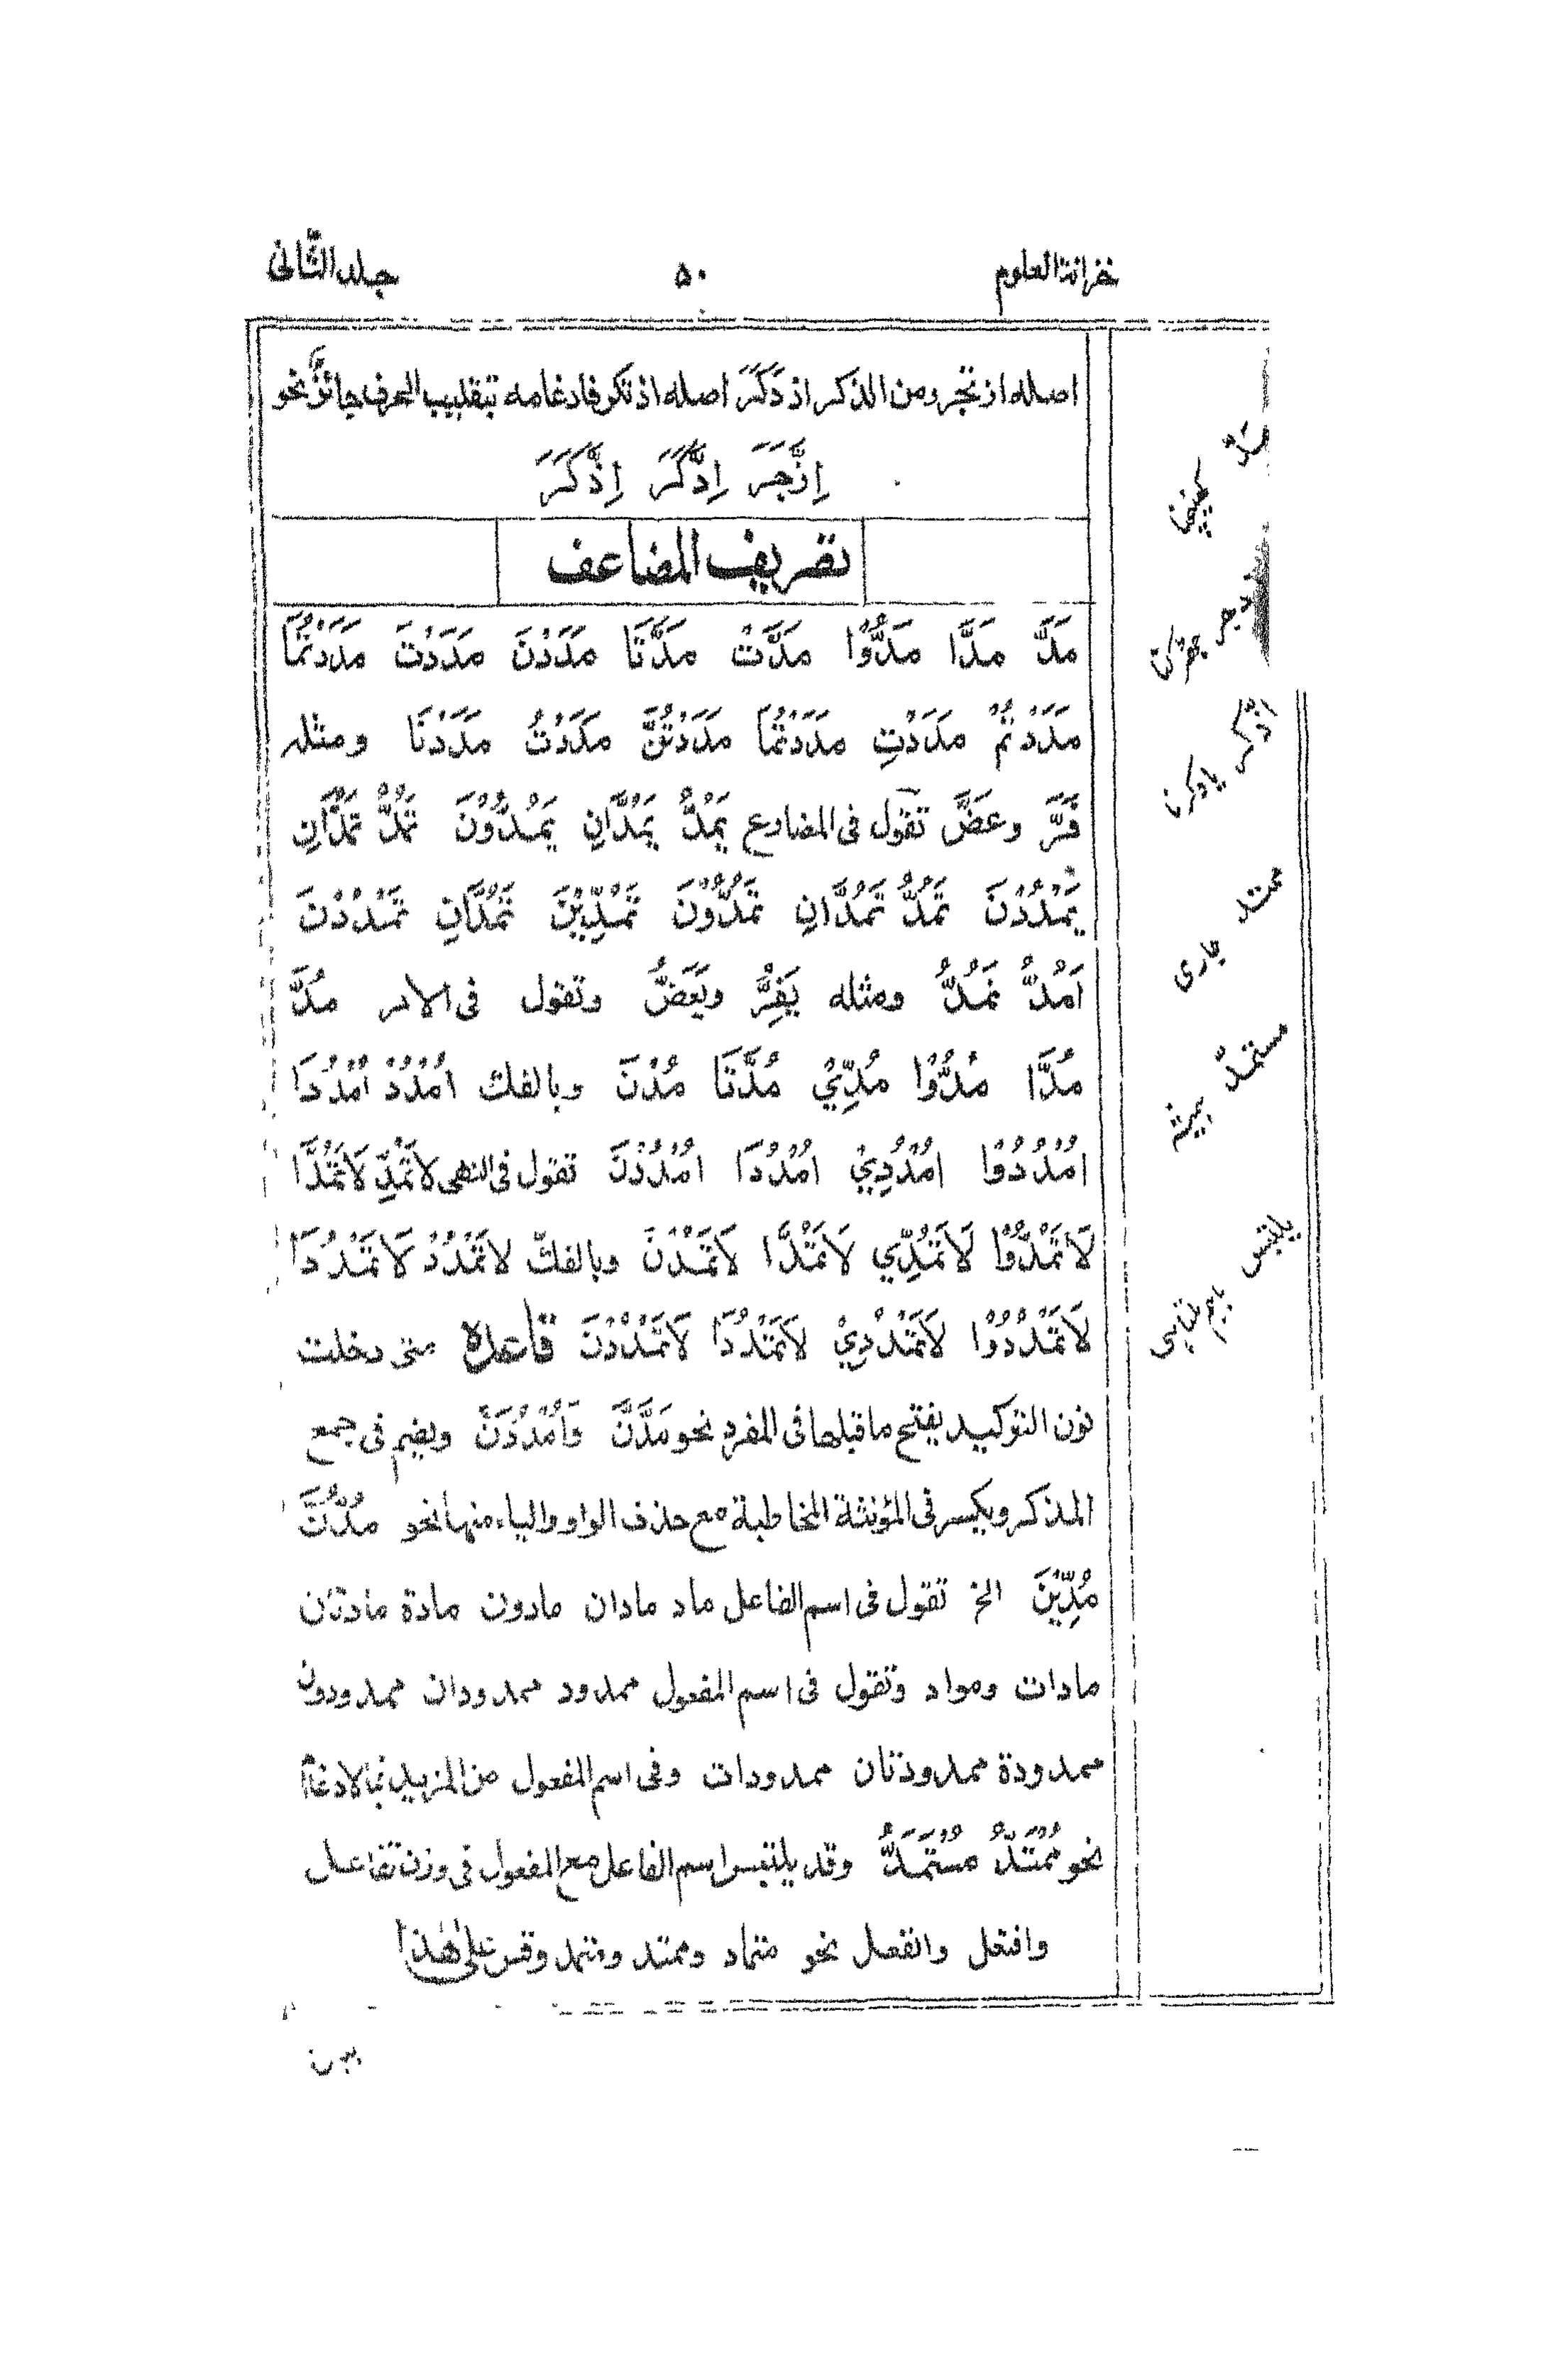 خزانة العلوم ۵۰ جلد الثانی
اصله ازتجر ومن الذکر اذدَکَرَ اصله اذتکر فادغامه بتقلیب الحرف جائزٌ نحو
اِزَّجَرَ اِدَّکَرَ اِذَّکَرَ
تصریف المضاعف
مَدَّ مَدَّا مَدُّوْا مَدَّتْ مَدَّتَا مَدَدْنَ مَدَدْتَ مَدَدْتُمَا
مَدَدْتُمْ مَدَدْتِ مَدَدْتُمَا مَدَدْتُنَّ مَدَدْتُ مَدَدْنَا ومثله
فَرَّ وعَضَّ تقول فی المضارع یَمُدُّ یَمُدَّانِ یَمُدُّوْنَ تَمُدُّ تَمُدَّانِ
یَمْدُدْنَ تَمُدُّ تَمُدَّانِ تَمُدُّوْنَ تَمُدِّیْنَ تَمُدَّانِ تَمْدُدْنَ
اَمُدُّ نَمُدُّ ومثله یَفِرُّ ویَعَضُّ وتقول فی الامر مُدَّ
مُدَّا مُدُّوْا مُدِّیْ مُدَّتَا مُدْنَ وبالفك اُمْدُدْ اُمْدُدَا
اُمْدُدُوْا اُمْدُدِیْ اُمْدُدَا اُمْدُدْنَ تقول فی النهی لاَتَمُدِّ لاَتَمُدَّا
لاَتَمُدُّوْا لاَتَمُدِّی لاَتَمُدَّا لاَتَمُدْنَ وبالفكّ لاَتَمْدُدْ لاَتَمْدُدَا
لاَتَمْدُدُوْا لاَتَمْدُدِیْ لاَتَمْدُدَا لاَتَمْدُدْنَ قاعده متی دخلت
نون التوکید یفتح ماقبلها فی المفرد نحو مُدَّنَّ وَاُمْدُدَنَّ ویضم فی جمع
المذکر ویکسر فی المؤنثة المخاطبة مع حذف الواو والیاء منها نحو مُدُّنَّ
مُدِّیْنَ الخ تقول فی اسم الفاعل ماد مادان مادون مادة مادتان
مادات ومواد وتقول فی اسم المفعول ممدود ممدودان ممدودون
ممدودة ممدودتان ممدودات وفی اسم المفعول من المزید بالادغام
نحو مُمْتَدٌّ مُسْتَمَدٌّ وقد یلتبس اسم الفاعل مع المفعول فی وزن تفاعل
وافتعل وانفعل نحو متماد وممتد ومنمد وقس علی هٰذا
مَدَّ کهینچنا
زجر جھڑکنا
اِذّکر یادکرنا
ممتد جاری
مستمدّ
یلتبس